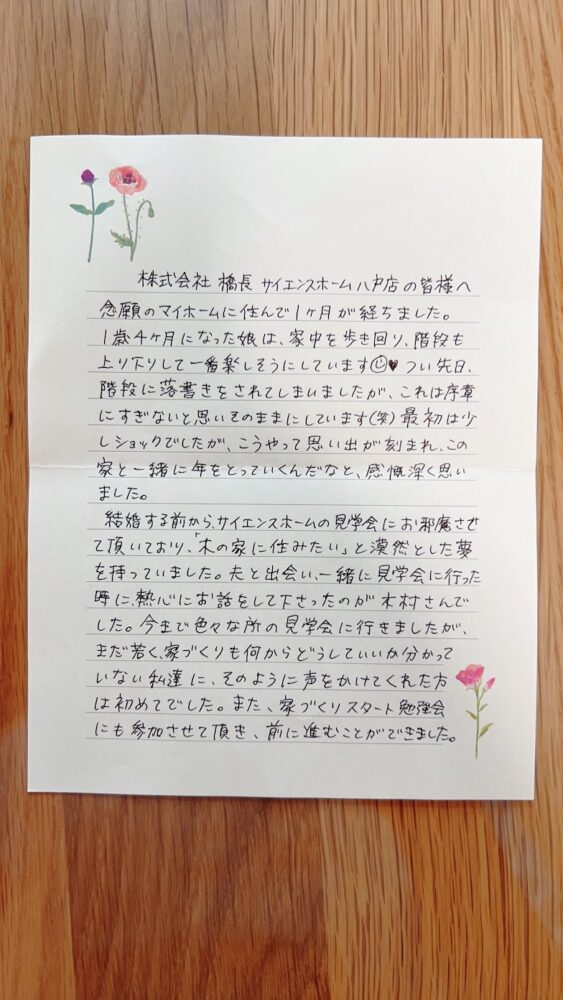 株式会社 橋長 サイエンスホーム八戸店の皆様へ
念願のマイホームに住んで1ヶ月が経ちました。
1歳4ヶ月になった娘は、家中を歩き回り、階段も
上り下りして一番楽しそうにしています☺♥ つい先日、
階段に落書きをされてしまいましたが、これは序章
にすぎないと思いそのままにしています(笑)最初は少
しショックでしたが、こうやって思い出が刻まれ、この
家と一緒に年をとっていくんだなと、感慨深く思い
ました。
結婚する前から、サイエンスホームの見学会にお邪魔させ
て頂いており、「木の家に住みたい」と漠然とした夢
を持っていました。夫と出会い、一緒に見学会に行った
時に、熱心にお話をして下さったのが木村さんで
した。今まで色々な所の見学会に行きましたが、
まだ若く、家づくりも何からどうしていいか分かって
いない私達に、そのように声をかけてくれた方
は初めてでした。また、家づくりスタート勉強会
にも参加させて頂き、前に進むことができました。